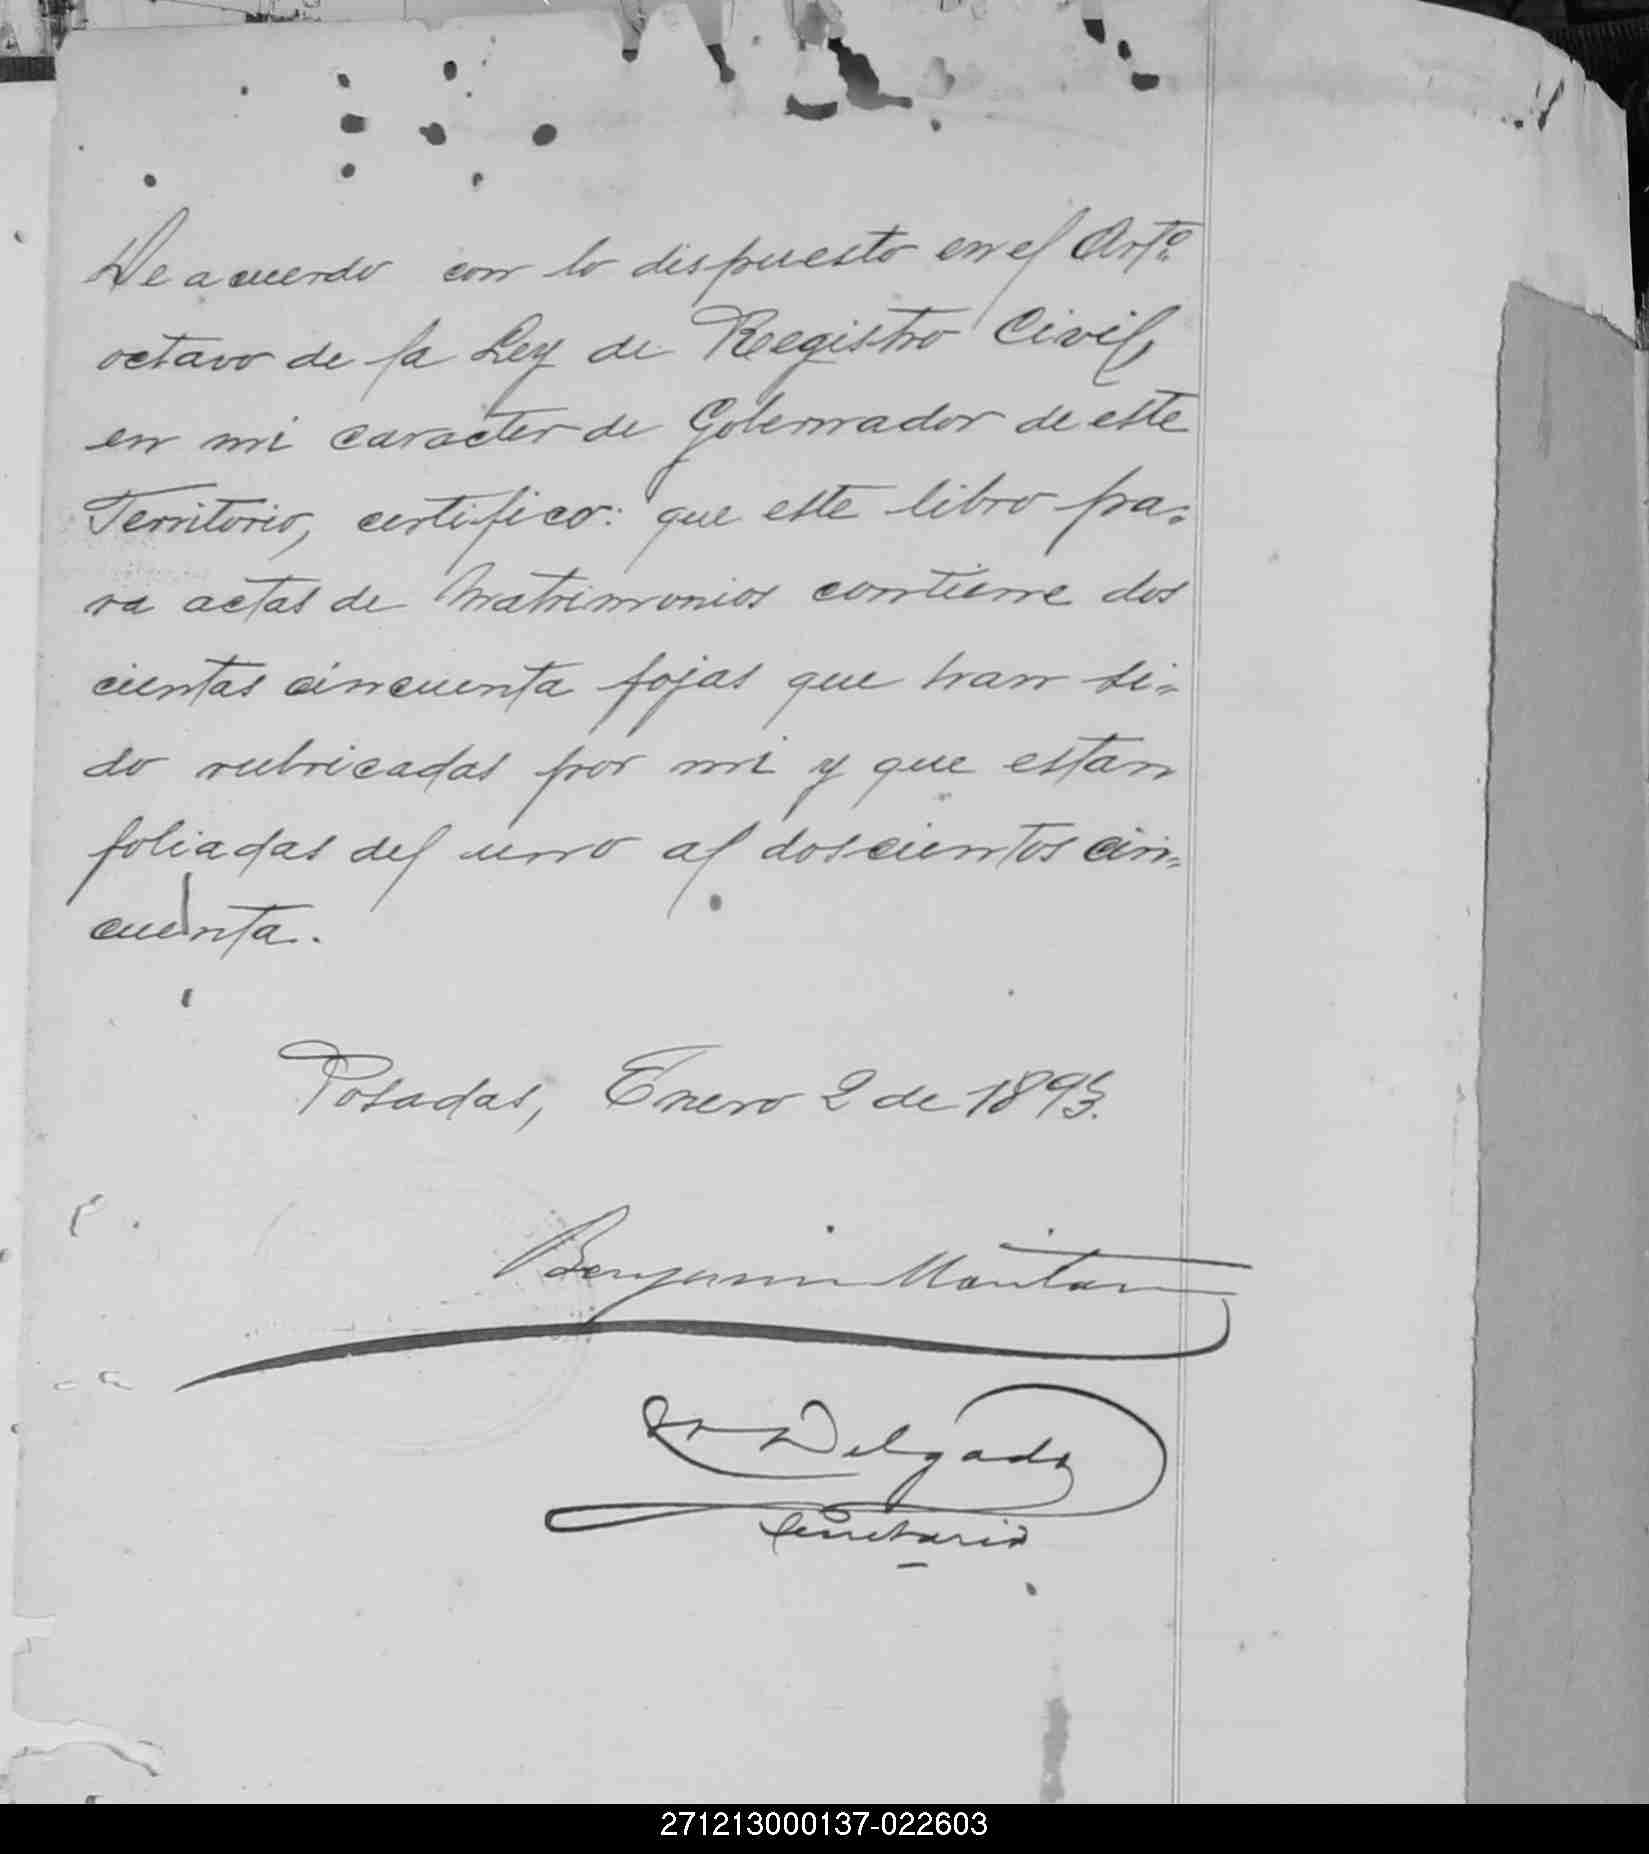 De acuerdo con lo dispuesto en el Artº
octavo de la Ley de Registro Civil,
en mi caracter de Gobernador de este
Territorio, certifico: que este libro pa-
ra actas de Matrimonios contiene dos
cientas cincuenta fojas que han si-
do rubricadas por mi y que estan
foliadas del uno al doscientos cin-
cuenta.
Posadas, Enero 2 de 1893.
Benjamin
Delgado
Secretario
271213000137-022603